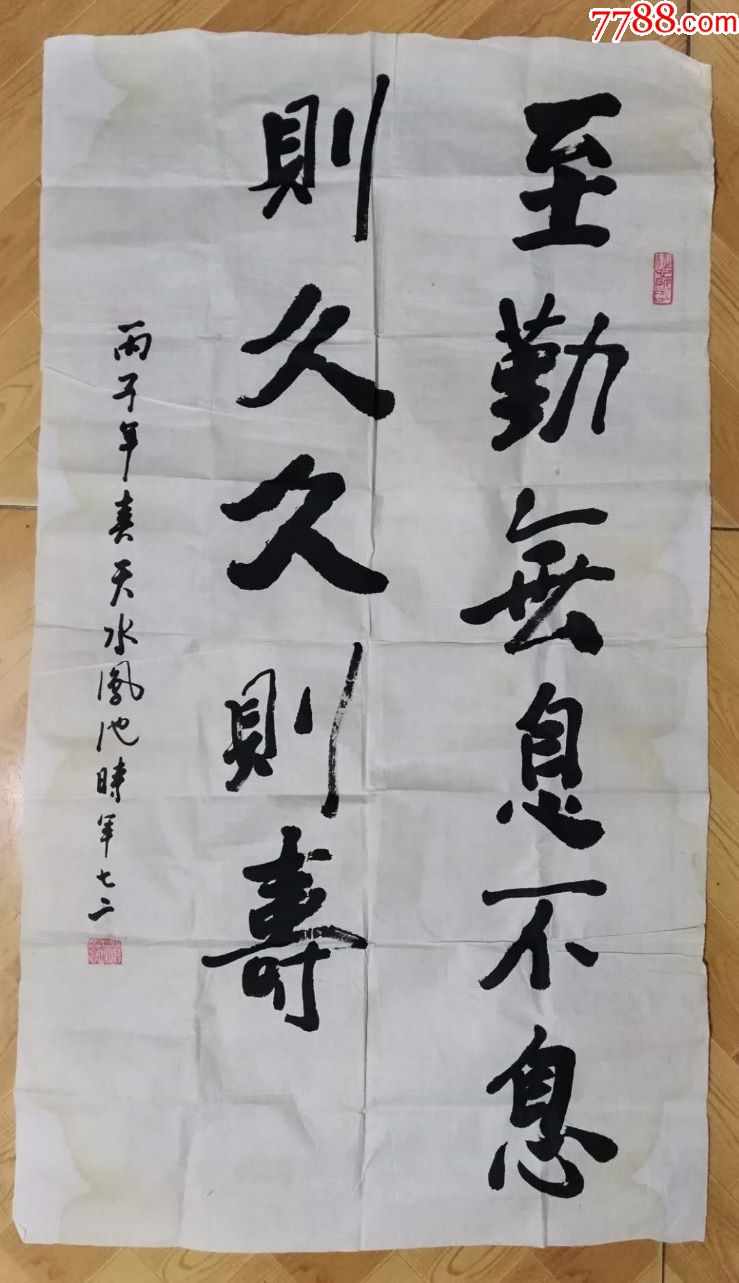 7788.com
至勤無息不息
則久久則壽
丙子年春天水鳳池時年七二